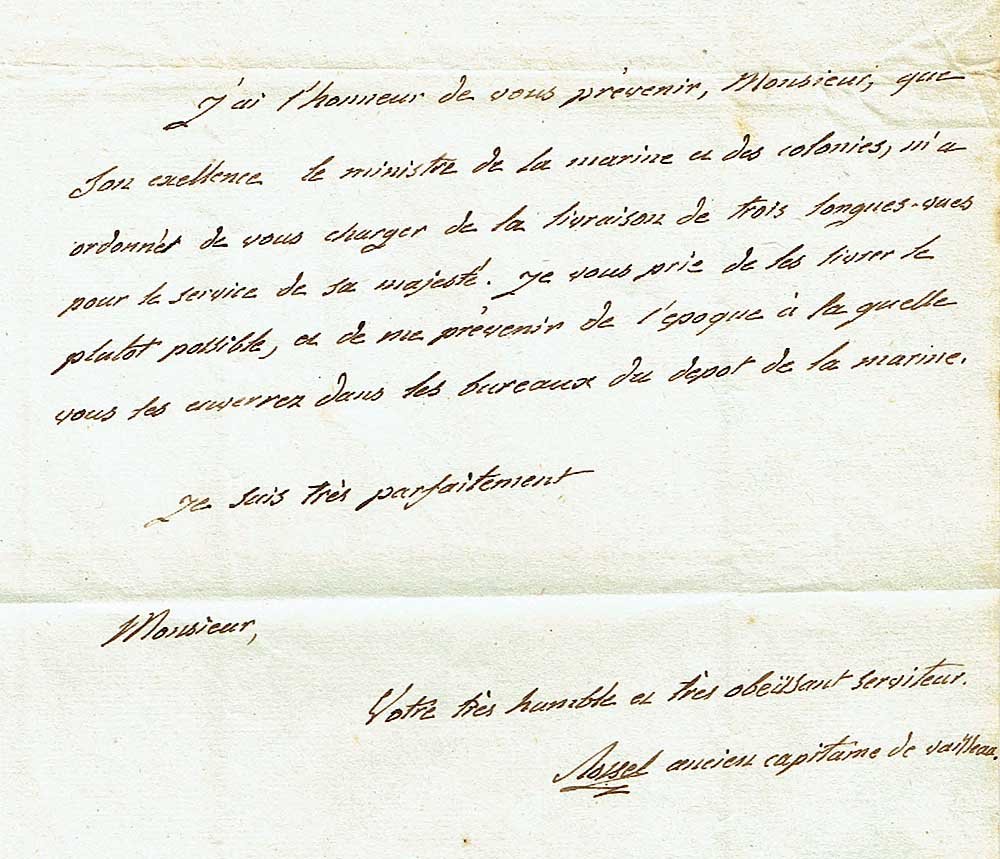 J'ai l'honneur de vous prévenir, Monsieur, que
Son exellence le ministre de la marine et des colonies, m'a
ordonnét de vous charger de la livraison de trois longues-vues
pour le service de sa majesté. Je vous prie de les livrer le
plutot possible, et de me prévenir de l'époque à la quelle
vous les enverrez dans les bureaux du depot de la marine.
Je suis très parfaitement
Monsieur,
Votre très humble et très obeïssant serviteur.
Rossel ancien capitaine de vaisseau.